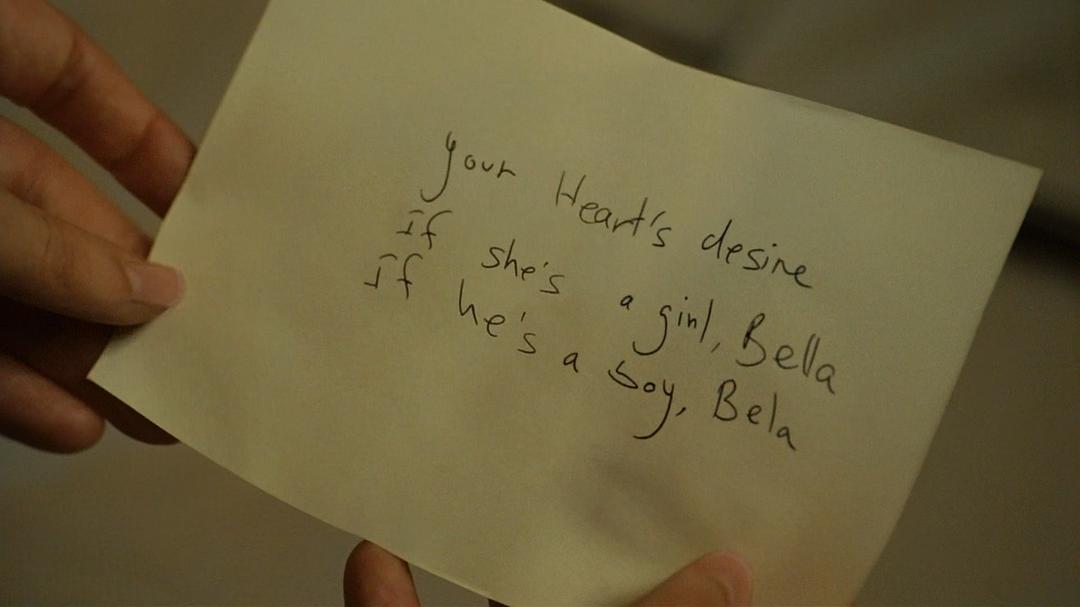 your Heart's desire
If she's a girl, Bella
If he's a boy, Bela